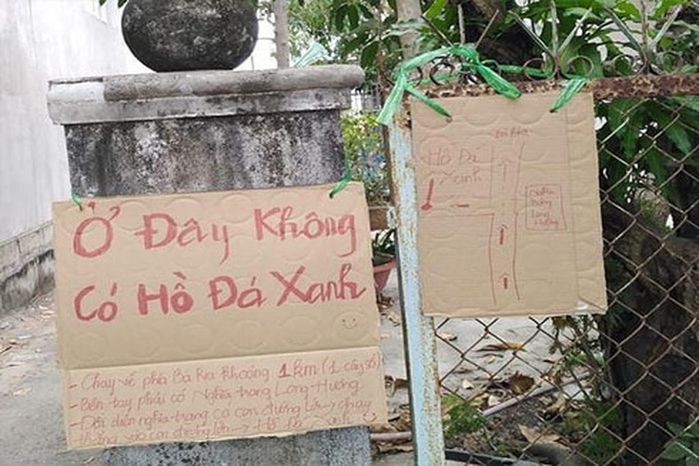 Ở Đây Không
Có Hồ Đá Xanh
- Chạy về phía Bà Rịa khoảng 1km (1 cây số)
- Bên tay phải có Nghĩa trang Long Hương
- Đối diện nghĩa trang có con đường lớn → chạy
thẳng vào con đường lớn → Hồ Đá Xanh
Bà Rịa
Hồ Đá
Xanh
Nghĩa
trang
Long
Hương